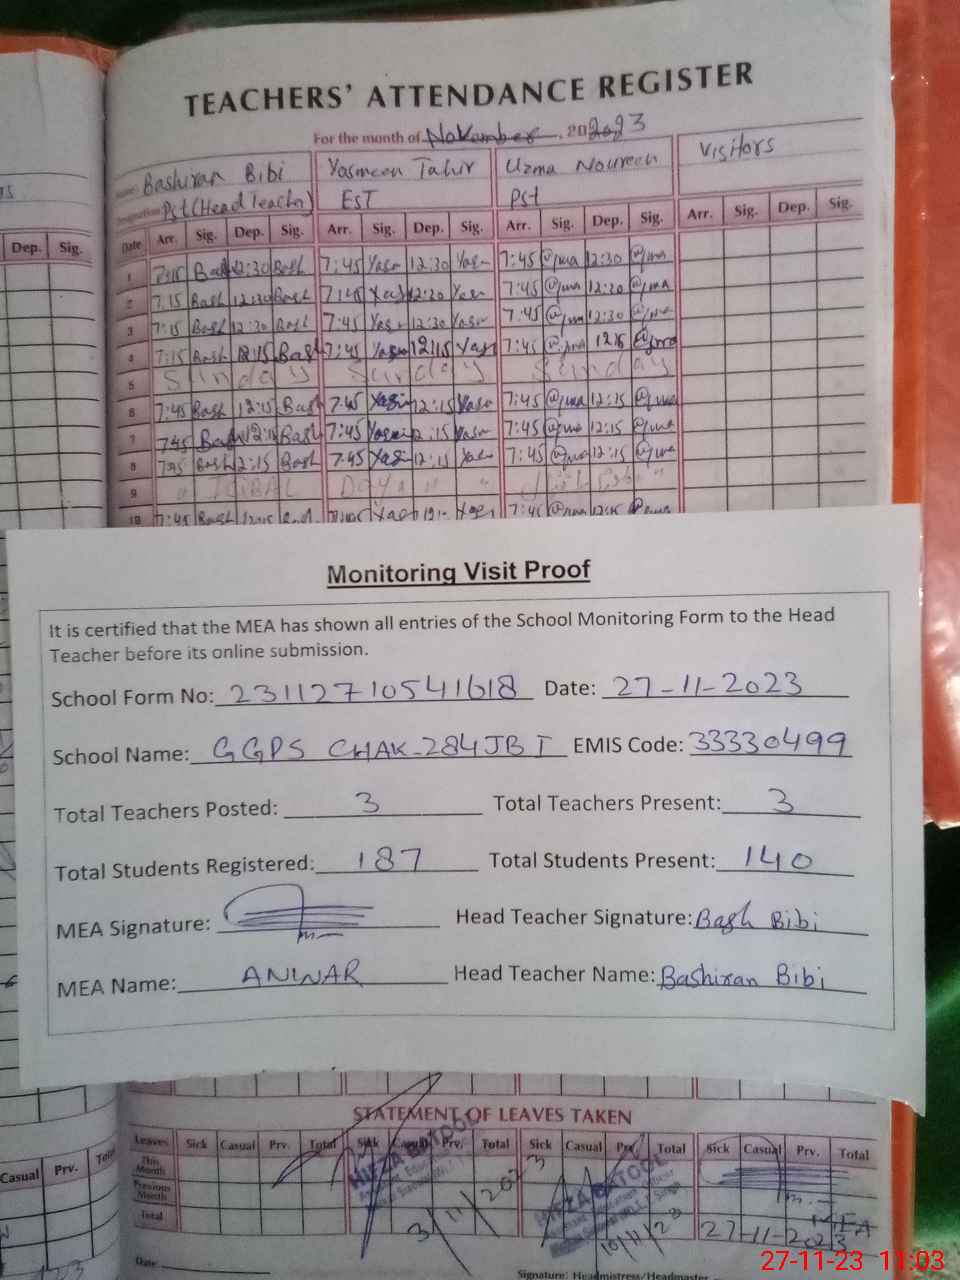 TEACHERS' ATTENDANCE REGISTER
For the month of November, 2023
Name: Bashiran Bibi Yasmeen Tahir Uzma Noureen Visitors
Designation Pst (Head Teacher) EST Pst
Dep. Sig. Date Arr. Sig. Dep. Sig. Arr. Sig. Dep. Sig. Arr. Sig. Dep. Sig. Arr. Sig. Dep. Sig.
1 7:15 Bash 12:30 Bash 7:45 Yasm 12:30 Yasm 7:45 @ma 12:30 @ma
2 7:15 Bash 12:30 Bash 7:45 Yas 12:30 Yasm 7:45 @ma 12:30 @ma
3 7:15 Bash 12:30 Bash 7:45 Yasm 12:30 Yasm 7:45 @ma 12:30 @ma
4 7:15 Bash 12:15 Bash 7:45 Yasm 12:15 Yasm 7:45 @ma 12:15 @ma
5 Sunday Sunday Sunday
6 7:45 Bash 12:15 Bash 7:45 Yasm 12:15 Yasm 7:45 @ma 12:15 @ma
7 7:45 Bash 12:15 Bash 7:45 Yasm 12:15 Yasm 7:45 @ma 12:15 @ma
8 7:45 Bash 12:15 Bash 7:45 Yasm 12:15 Yasm 7:45 @ma 12:15 @ma
9 IQBAL Day
10 7:45 Bash 7:45
Monitoring Visit Proof
It is certified that the MEA has shown all entries of the School Monitoring Form to the Head
Teacher before its online submission.
School Form No: 23112710541618 Date: 27-11-2023
School Name: GGPS CHAK-284JB I EMIS Code: 33330499
Total Teachers Posted: 3 Total Teachers Present: 3
Total Students Registered: 187 Total Students Present: 140
MEA Signature: Head Teacher Signature: Bash Bibi
MEA Name: ANWAR Head Teacher Name: Bashiran Bibi
STATEMENT OF LEAVES TAKEN
Casual Prv. Total Leaves Sick Casual Prv. Total Sick Casual Prv. Total Sick Casual Prv. Total Sick Casual Prv. Total
This Month
Previous Month
Total
HIFZA BATOOL
3/11/2023
HIFZA BATOOL
10/11/23
MEA
27-11-2023
Date:
Signature: Headmistress/Headmaster
27-11-23 11:03